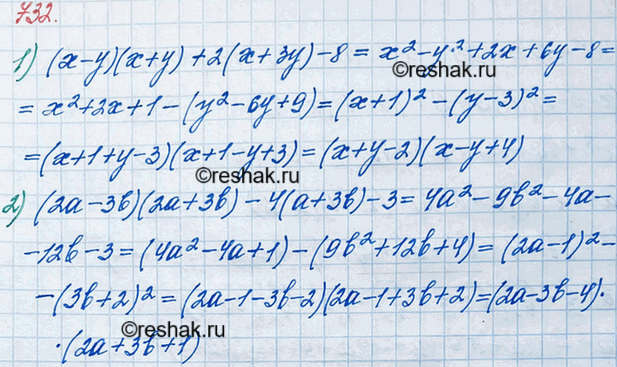 732.
1) (x-y)(x+y)+2(x+3y)-8 = x²-y²+2x+6y-8=
©reshak.ru
= x²+2x+1-(y²-6y+9)=(x+1)²-(y-3)²=
=(x+1+y-3)(x+1-y+3)=(x+y-2)(x-y+4)
©reshak.ru
2) (2a-3b)(2a+3b)-4(a+3b)-3=4a²-9b²-4a-
-12b-3=(4a²-4a+1)-(9b²+12b+4)=(2a-1)²-
-(3b+2)²=(2a-1-3b-2)(2a-1+3b+2)=(2a-3b-4)·
©reshak.ru
·(2a+3b+1)